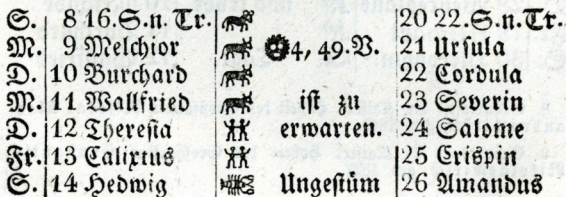 S. 8 16.S.n.Tr. 20 22.S.n.Tr.
M. 9 Melchior 4, 49.V. 21 Ursula
D. 10 Burchard 22 Cordula
M. 11 Wallfried ist zu 23 Severin
D. 12 Theresia erwarten. 24 Salome
Fr. 13 Calixtus 25 Crispin
S. 14 Hedwig Ungestüm 26 Amandus